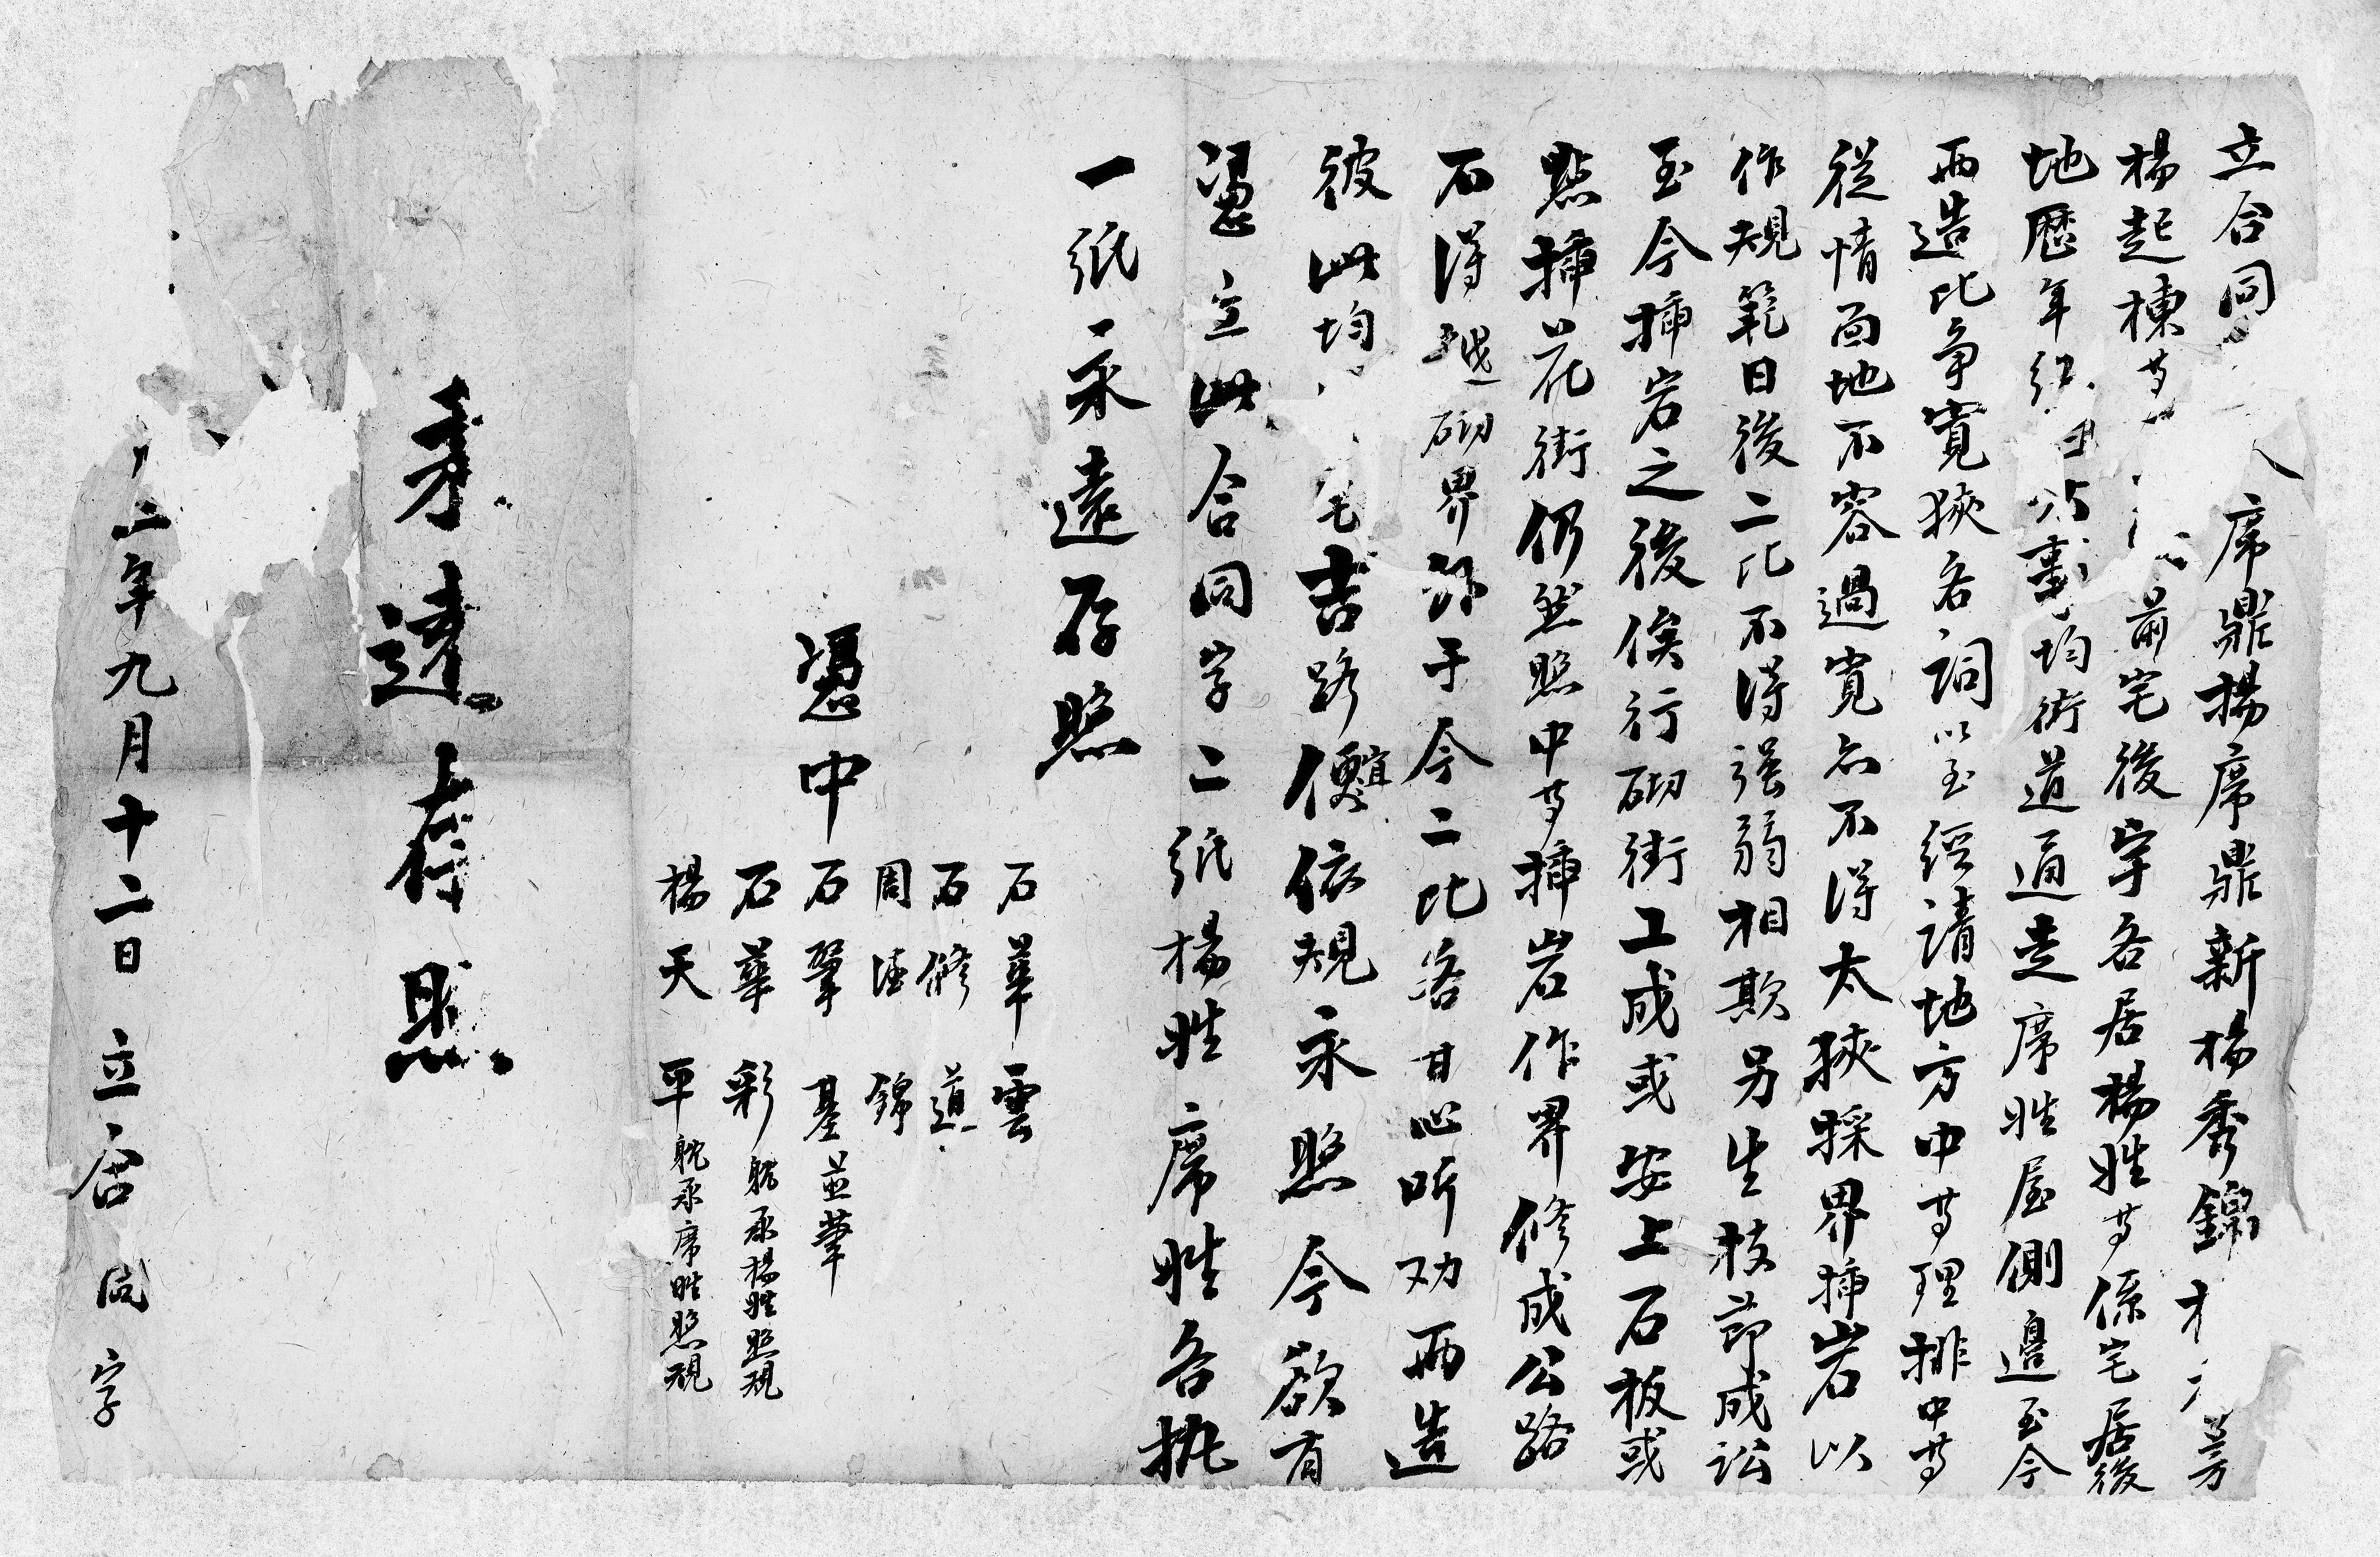 立合同人席鼎揚席鼎新楊秀錦才等
楊起棟等前宅後字各居楊姓等係宅居後
地歷年均街道通走席姓屋側邊至今
両造比争寬狹各詞以至經請地方中等理排中等
從情面地不容過寬亦不得太狹踩界挿岩以
作規範日後二比不得强弱相欺另生枝節成訟
至今挿岩之後俟行砌街工成或安上石板或
點挿花街仍然照中等挿岩作界修成公路
石得越砌界部于今二比各甘心听劝両造
彼此均宅吉路便宜依規永照今欲有
憑立此合同字二紙楊姓席姓各执
一紙永遠存照
石華雲
石修道
周錦
憑中石肇基並筆
石華彩躭承楊姓照規
楊天平躭承席姓照規
永遠存照
二年九月十二日立合同字